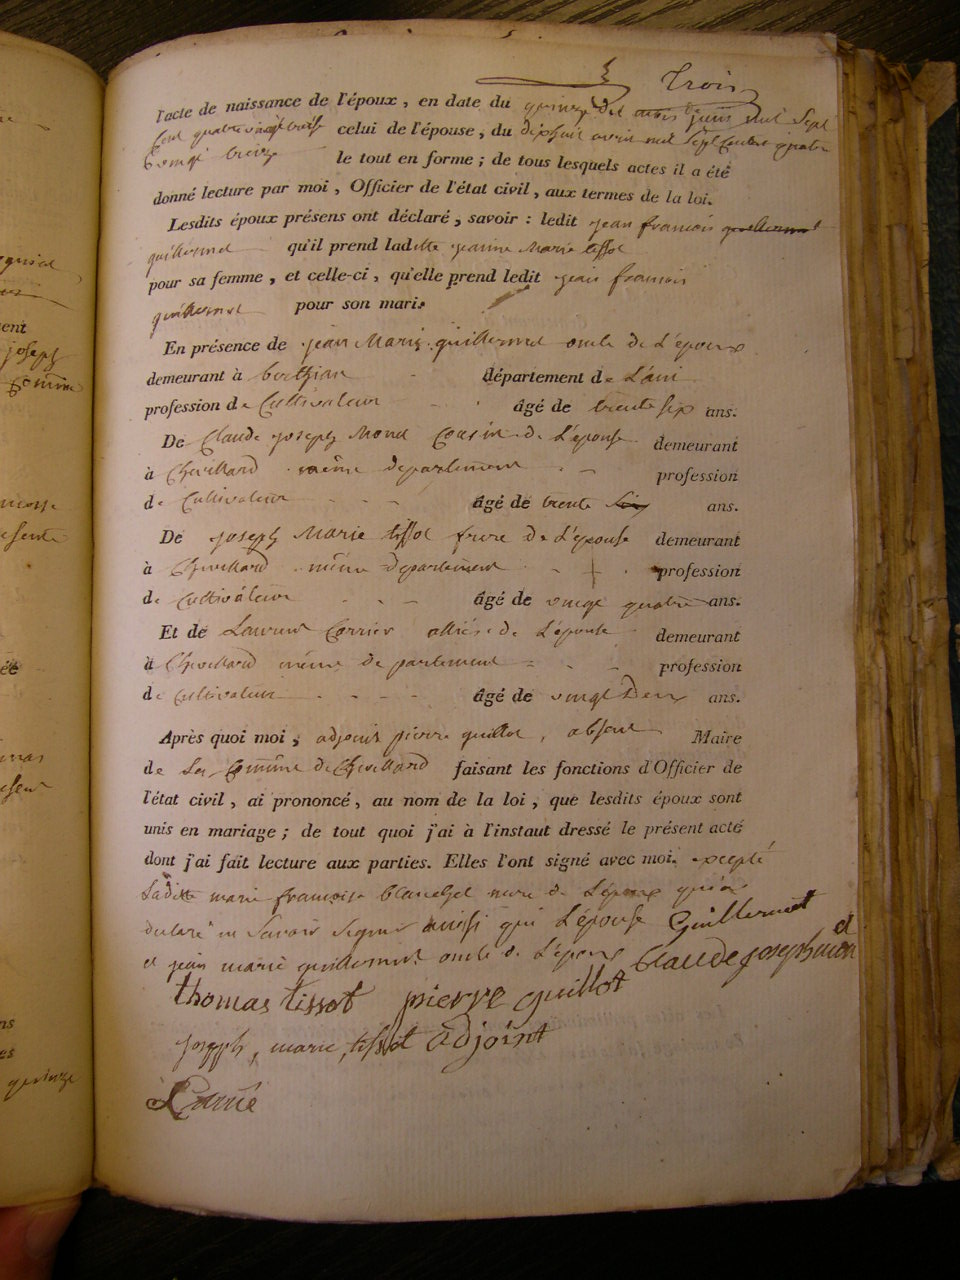 Trois
l'acte de naissance de l'époux, en date du quinze dit juin mil Sept
Cent quatre vingt treize celui de l'épouse, du dixhuit avril mil Sept Cent quatre
vingt treize le tout en forme ; de tous lesquels actes il a été
donné lecture par moi, Officier de l'état civil, aux termes de la loi.
Lesdits époux présens ont déclaré, savoir : ledit jean francois guillermet
guillermet qu'il prend ladite jeanne Marie tissot
pour sa femme, et celle-ci, qu'elle prend ledit jean francois
guillermet pour son mari.
En présence de jean Marie guillermet oncle de L'époux
demeurant à département de L'ain
profession de Cultivateur âgé de trente six ans.
De Claude joseph Monet Cousin de L'épouse demeurant
à Chevillard même departement profession
de Cultivateur âgé de trente ans.
De joseph Marie tissot frere de L'épouse demeurant
à Chevillard même departement profession
de Cultivateur âgé de vingt quatre ans.
Et de Laurent Carrier alliés de L'épouse demeurant
à Chevillard même departement profession
de Cultivateur âgé de vingt Deux ans.
Après quoi moi, adjoint pierre guillot, absent Maire
de La Comune de Chevillard faisant les fonctions d'Officier de
l'état civil, ai prononcé, au nom de la loi, que lesdits époux sont
unis en mariage ; de tout quoi j'ai à l'instaut dressé le présent acte
dont j'ai fait lecture aux parties. Elles l'ont signé avec moi. excepté
Ladite marie francoise mere de L'époux qui a
declaré ne Savoir Signer aussi que L'épouse Guillermet
et jean marie guillermet oncle de L'époux Claude joseph monet
thomas tissot pierre guillot
joseph, marie, tissot adjoint